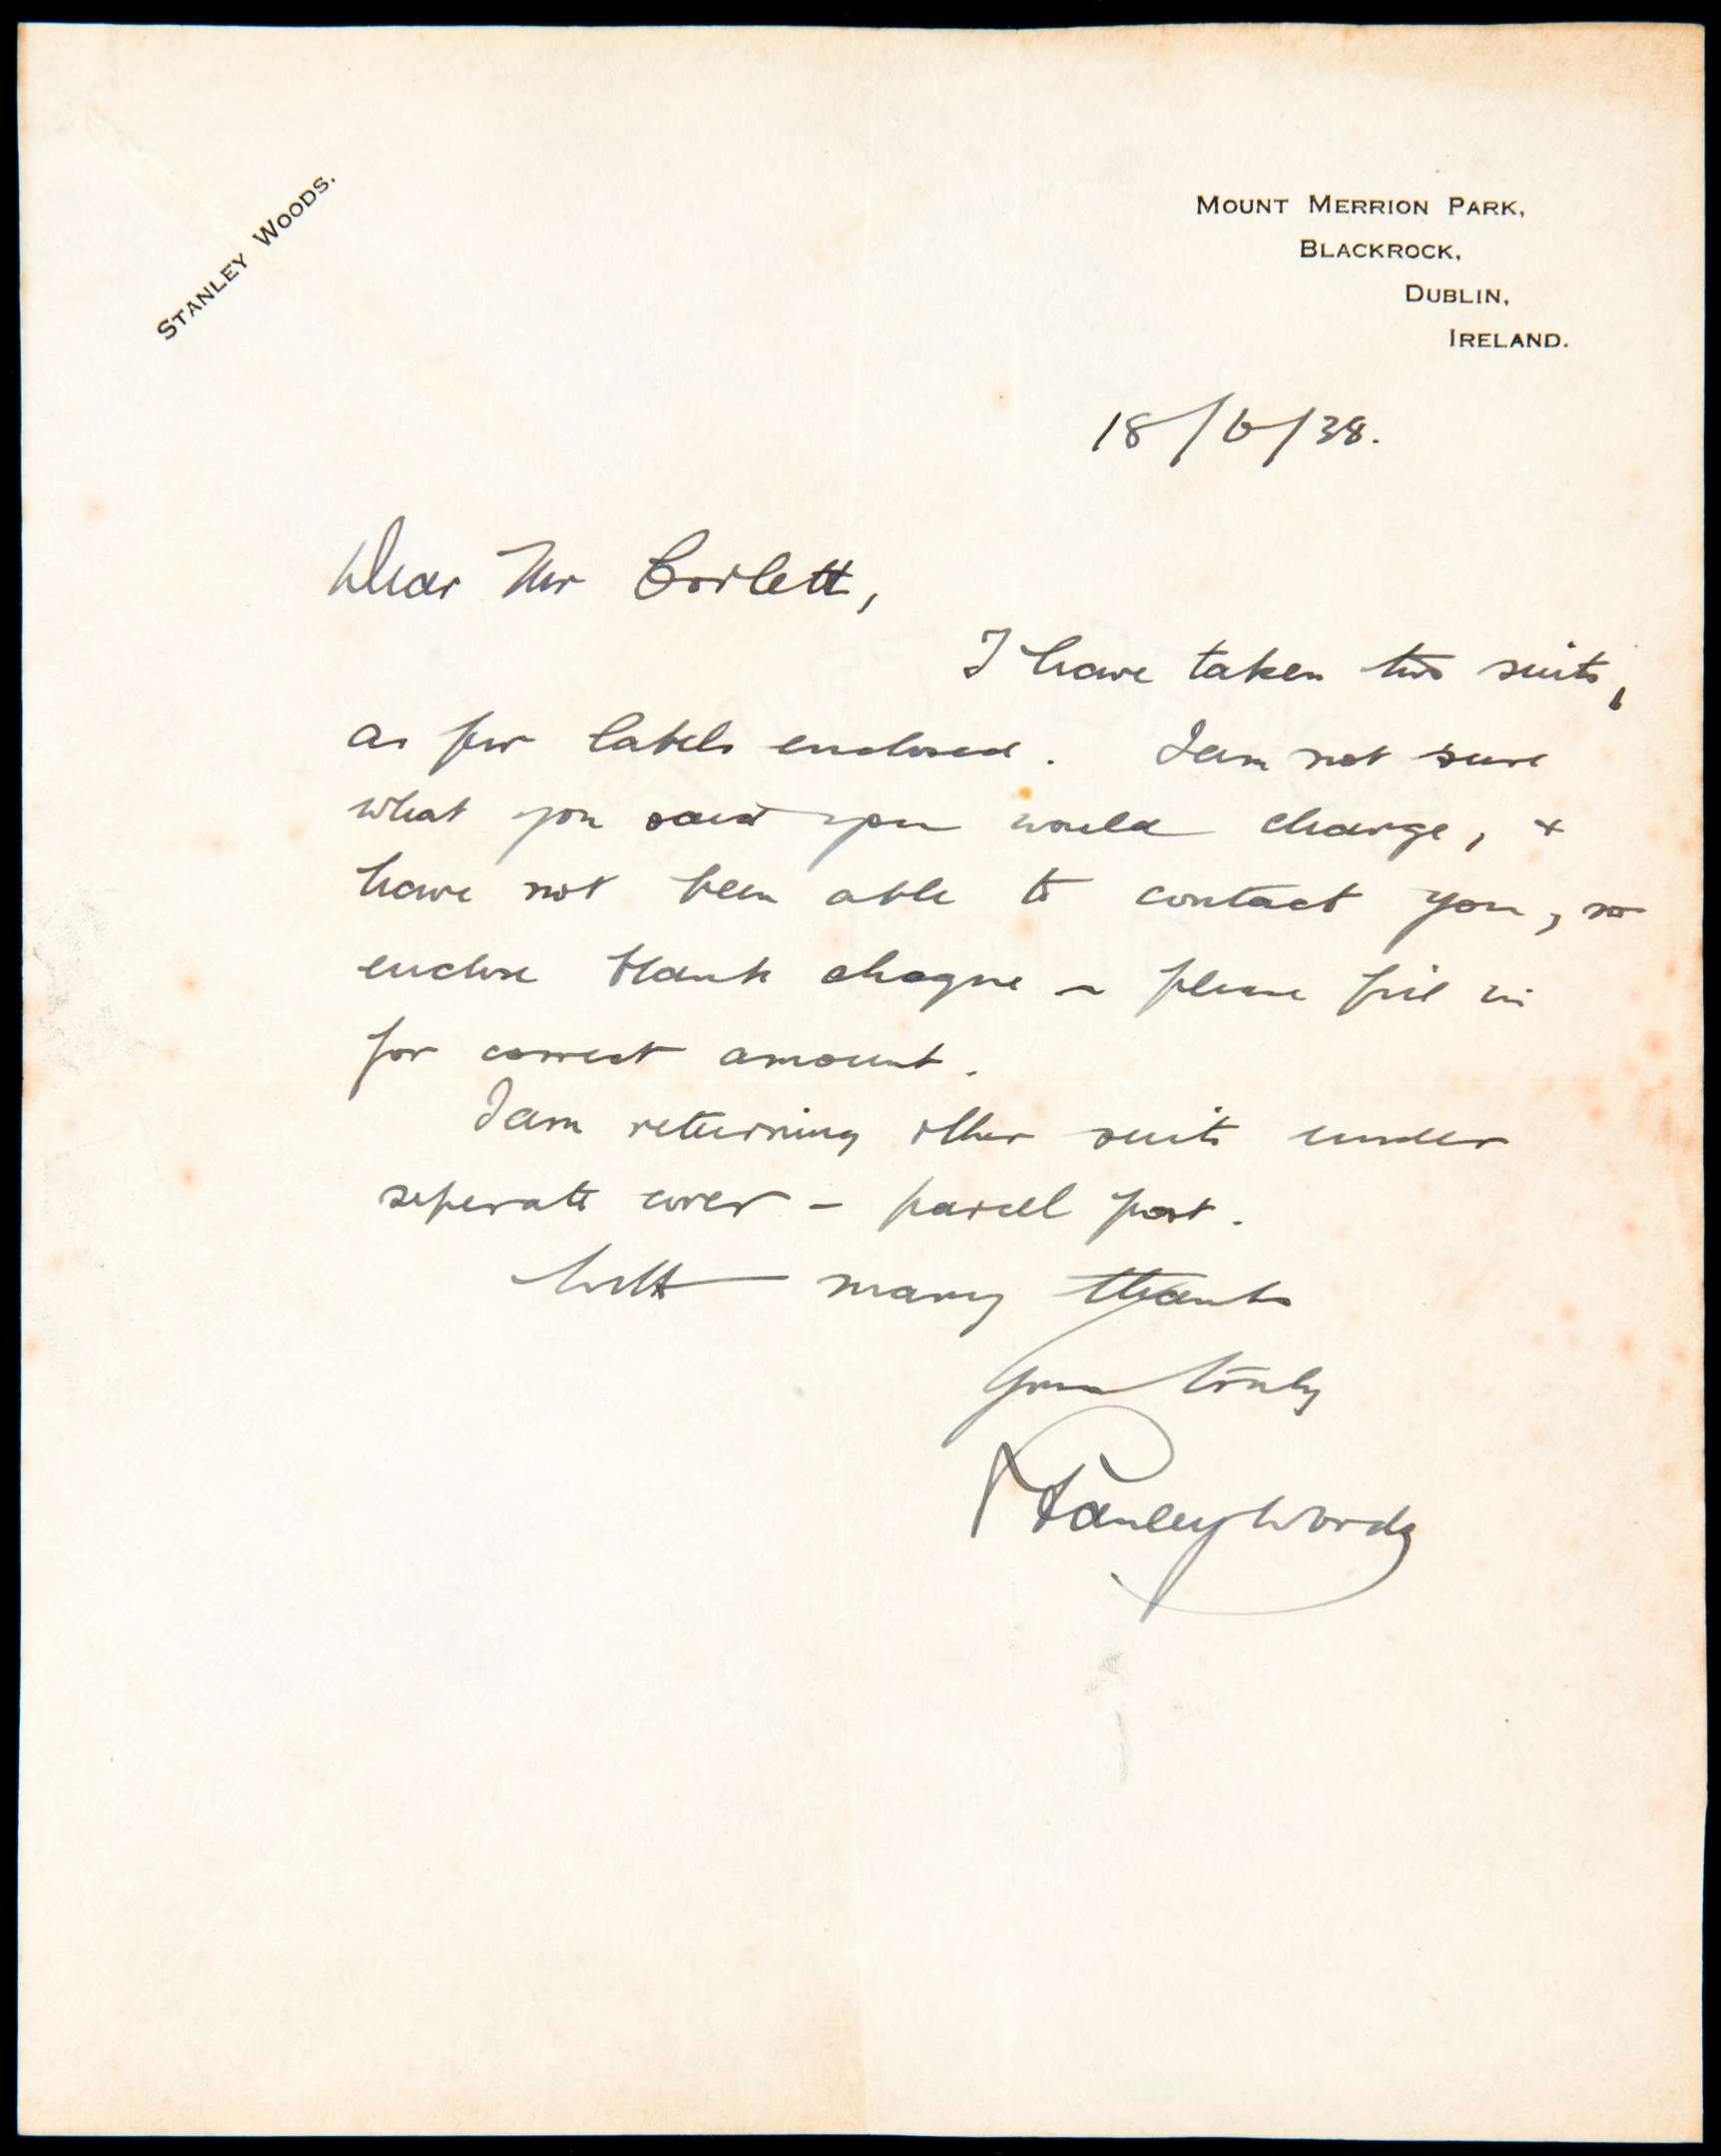 STANLEY WOODS.
MOUNT MERRION PARK,
BLACKROCK,
DUBLIN,
IRELAND.
18/6/38.
Dear Mr Corlett,
I have taken two suits,
as per labels enclosed. I am not sure
what you said you would charge, &
have not been able to contact you, so
enclose blank cheque - please fill in
for correct amount.
I am returning other suits under
seperate cover - parcel post.
With many thanks
Yours truly
Stanley Woods